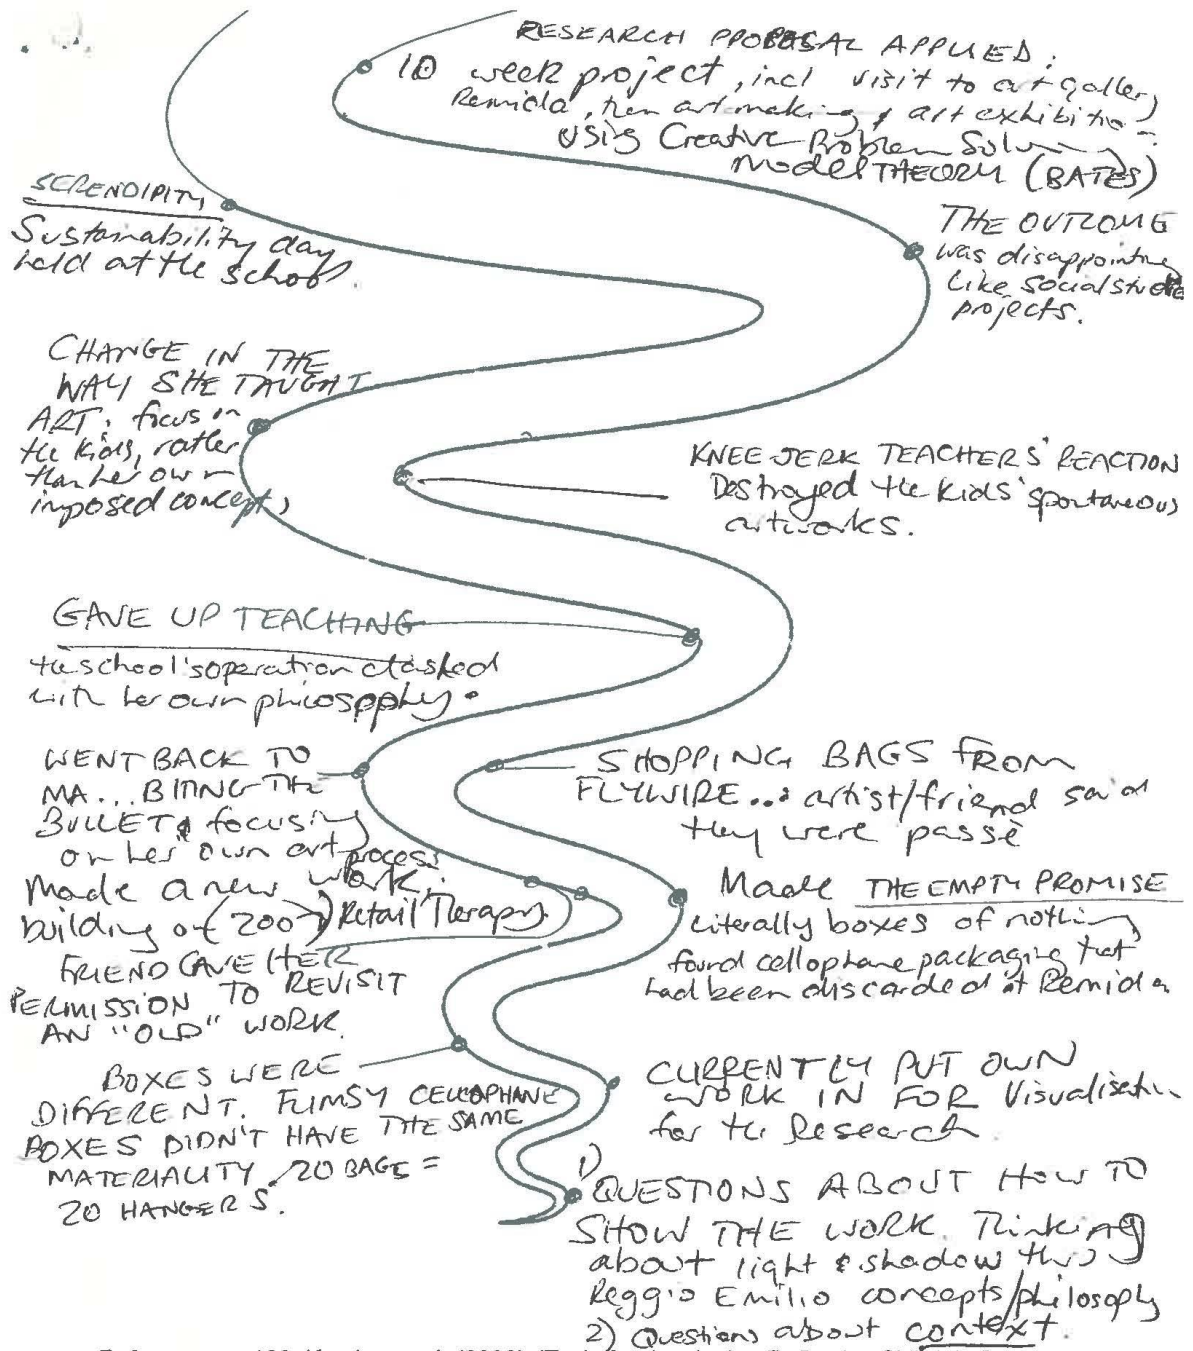 RESEARCH PPOPOSAL APPLIED:
10 week project, incl visit to art gallery
Remida, then artmaking & art exhibition
using Creative Problem Solving
Model THEORY (BATES)
SERENDIPITY
Sustainability day
held at the school.
THE OUTCOME
was disappointing
Like social studies
projects.
CHANGE IN THE
WAY SHE TAUGHT
ART: focus on
the kids, rather
than her own
imposed concept,
KNEE-JERK TEACHERS' REACTION
Destroyed the kids' spontaneous
artworks.
GAVE UP TEACHING
the school's operation clashed
with her own philosophy.
WENT BACK TO
MA... BITING THE
BULLET & focusing
on her own art process
Made a new work,
building of (2007) Retail Therapy
FRIEND GAVE HER
PERMISSION TO REVISIT
AN "OLD" WORK.
SHOPPING BAGS FROM
FLYWIRE...: artist/friend said
they were passè
Made THE EMPTY PROMISE
Literally boxes of nothing
found cellophane packaging that
had been discarded at Remida
BOXES WERE
DIFFERENT. FLIMSY CELLOPHANE
BOXES DIDN'T HAVE THE SAME
MATERIALITY. 20 BAGS =
20 HANGERS.
CURRENTLY PUT OWN
WORK IN FOR Visualisation
for the Research
1) QUESTIONS ABOUT HOW TO
SHOW THE WORK. Thinking
about light & shadow thro
Reggio Emilio concepts/philosophy
2) Questions about context.